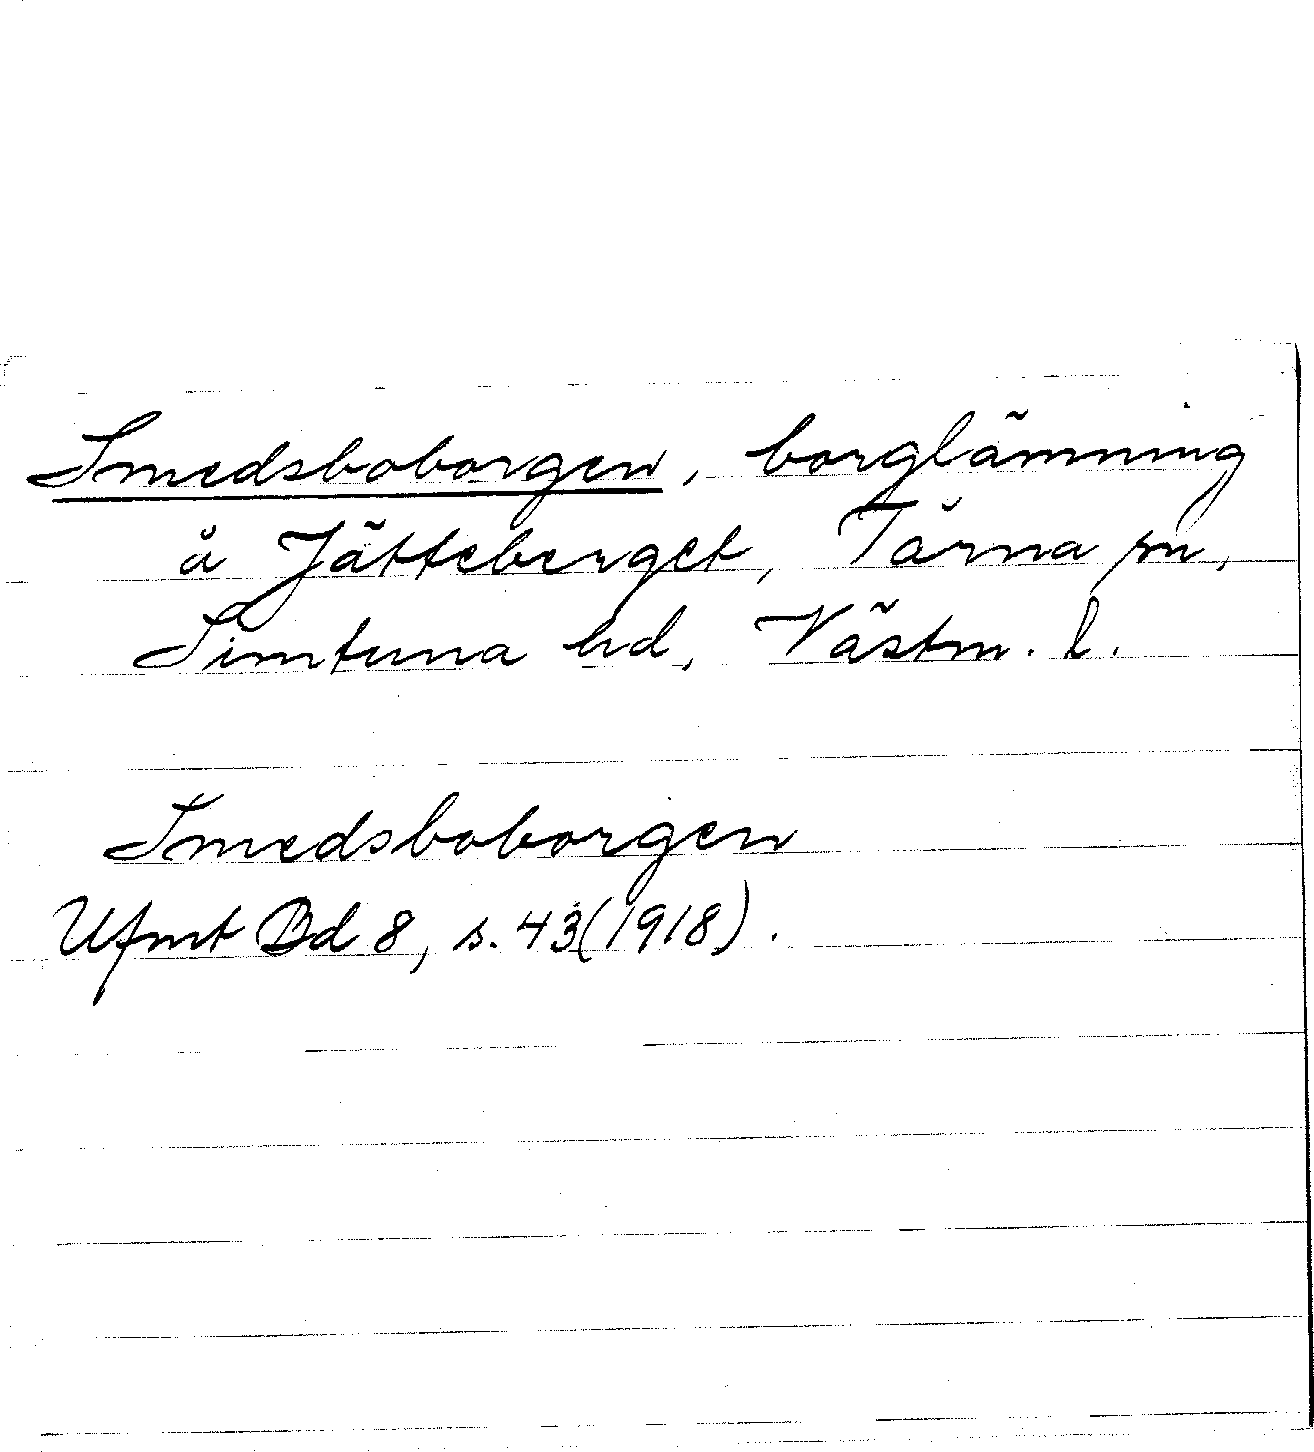 Smedsboborgen, borglämning
å Jätteberget, Tärna sn,
Simtuna hd, Västm. l.
Smedsboborgen
Ufmt Bd 8, s. 43 (1918).